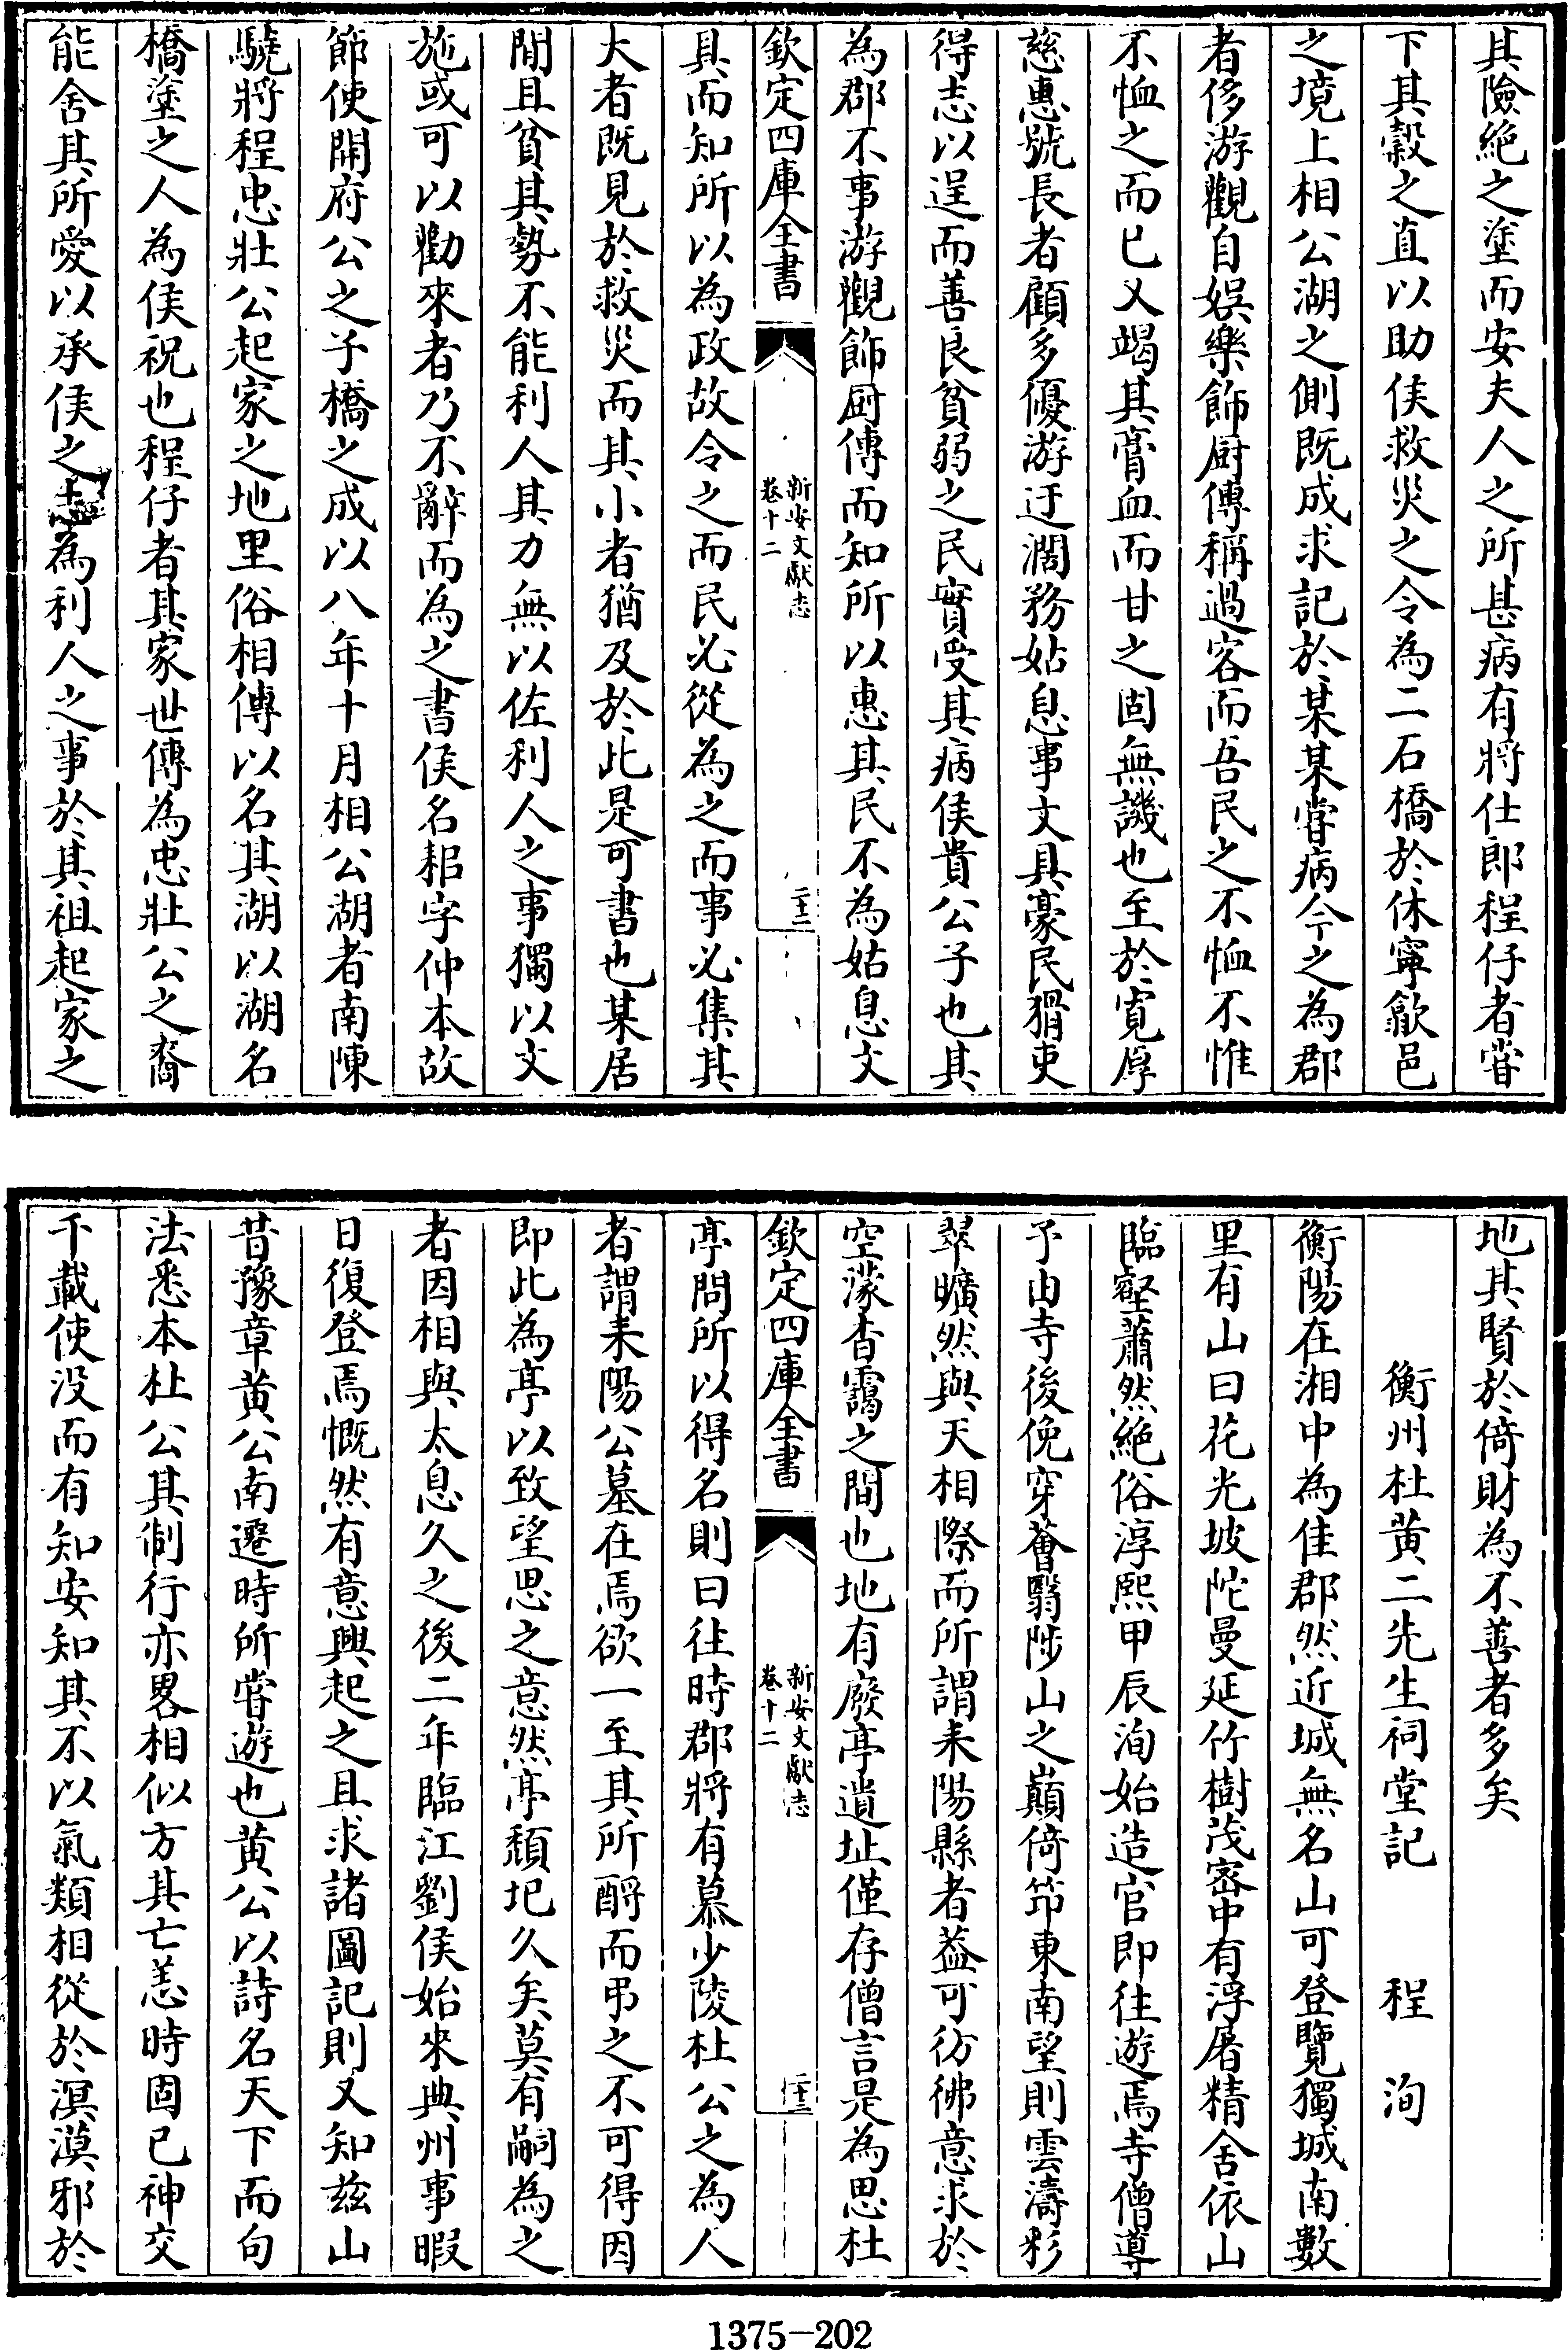 其險絶之塗而安夫人之所甚病有將仕郎程仔者嘗
下其榖之直以助侯救災之令為二石橋於休寧歙邑
之境上相公湖之側既成求記於某某嘗病今之為郡
者侈游觀自娱樂飾厨傳稱過客而吾民之不恤不惟
不恤之而已又竭其膏血而甘之固無譏也至於寛厚
慈惠號長者顧多優游迂濶務姑息事文具豪民猾吏
得志以逞而善良貧弱之民實受其病侯貴公子也其
為郡不事游觀飾厨傳而知所以惠其民不為姑息文
欽定四庫全書
新安文獻志
卷十二
二十三
具而知所以為政故令之而民必從為之而事必集其
大者既見於救災而其小者猶及於此是可書也某居
閒且貧其勢不能利人其力無以佐利人之事獨以文
施或可以勸來者乃不辭而為之書侯名耜字仲本故
節使開府公之子橋之成以八年十月相公湖者南陳
驍將程忠壯公起家之地里俗相傳以名其湖以湖名
橋塗之人為侯祝也程仔者其家世傳為忠壯公之裔
能舍其所愛以承侯之志為利人之事於其祖起家之
地其賢於倚財為不善者多矣
衡州杜黄二先生祠堂記 程洵
衡陽在湘中為佳郡然近城無名山可登覽獨城南數
里有山曰花光坡陀曼延竹樹茂宻中有浮屠精舍依山
臨壑蕭然絶俗淳熙甲辰洵始造官即往遊焉寺僧導
予由寺後俛穿薈翳陟山之巔倚笻東南望則雲濤衫
翠曠然與天相際而所謂耒陽縣者葢可彷彿意求於
空濛杳靄之間也地有廢亭遺址僅存僧言是為思杜
欽定四庫全書
新安文獻志
卷十二
二十三
亭問所以得名則曰往時郡將有慕少陵杜公之為人
者謂耒陽公墓在焉欲一至其所酹而弔之不可得因
即此為亭以致望思之意然亭頽圮久矣莫有嗣為之
者因相與太息久之後二年臨江劉侯始來典州事暇
日復登焉慨然有意興起之且求諸圖記則又知兹山
昔豫章黄公南遷時所嘗遊也黄公以詩名天下而句
法悉本杜公其制行亦畧相似方其亡恙時固已神交
千載使没而有知安知其不以氣類相從於溟漠邪於
1375-202